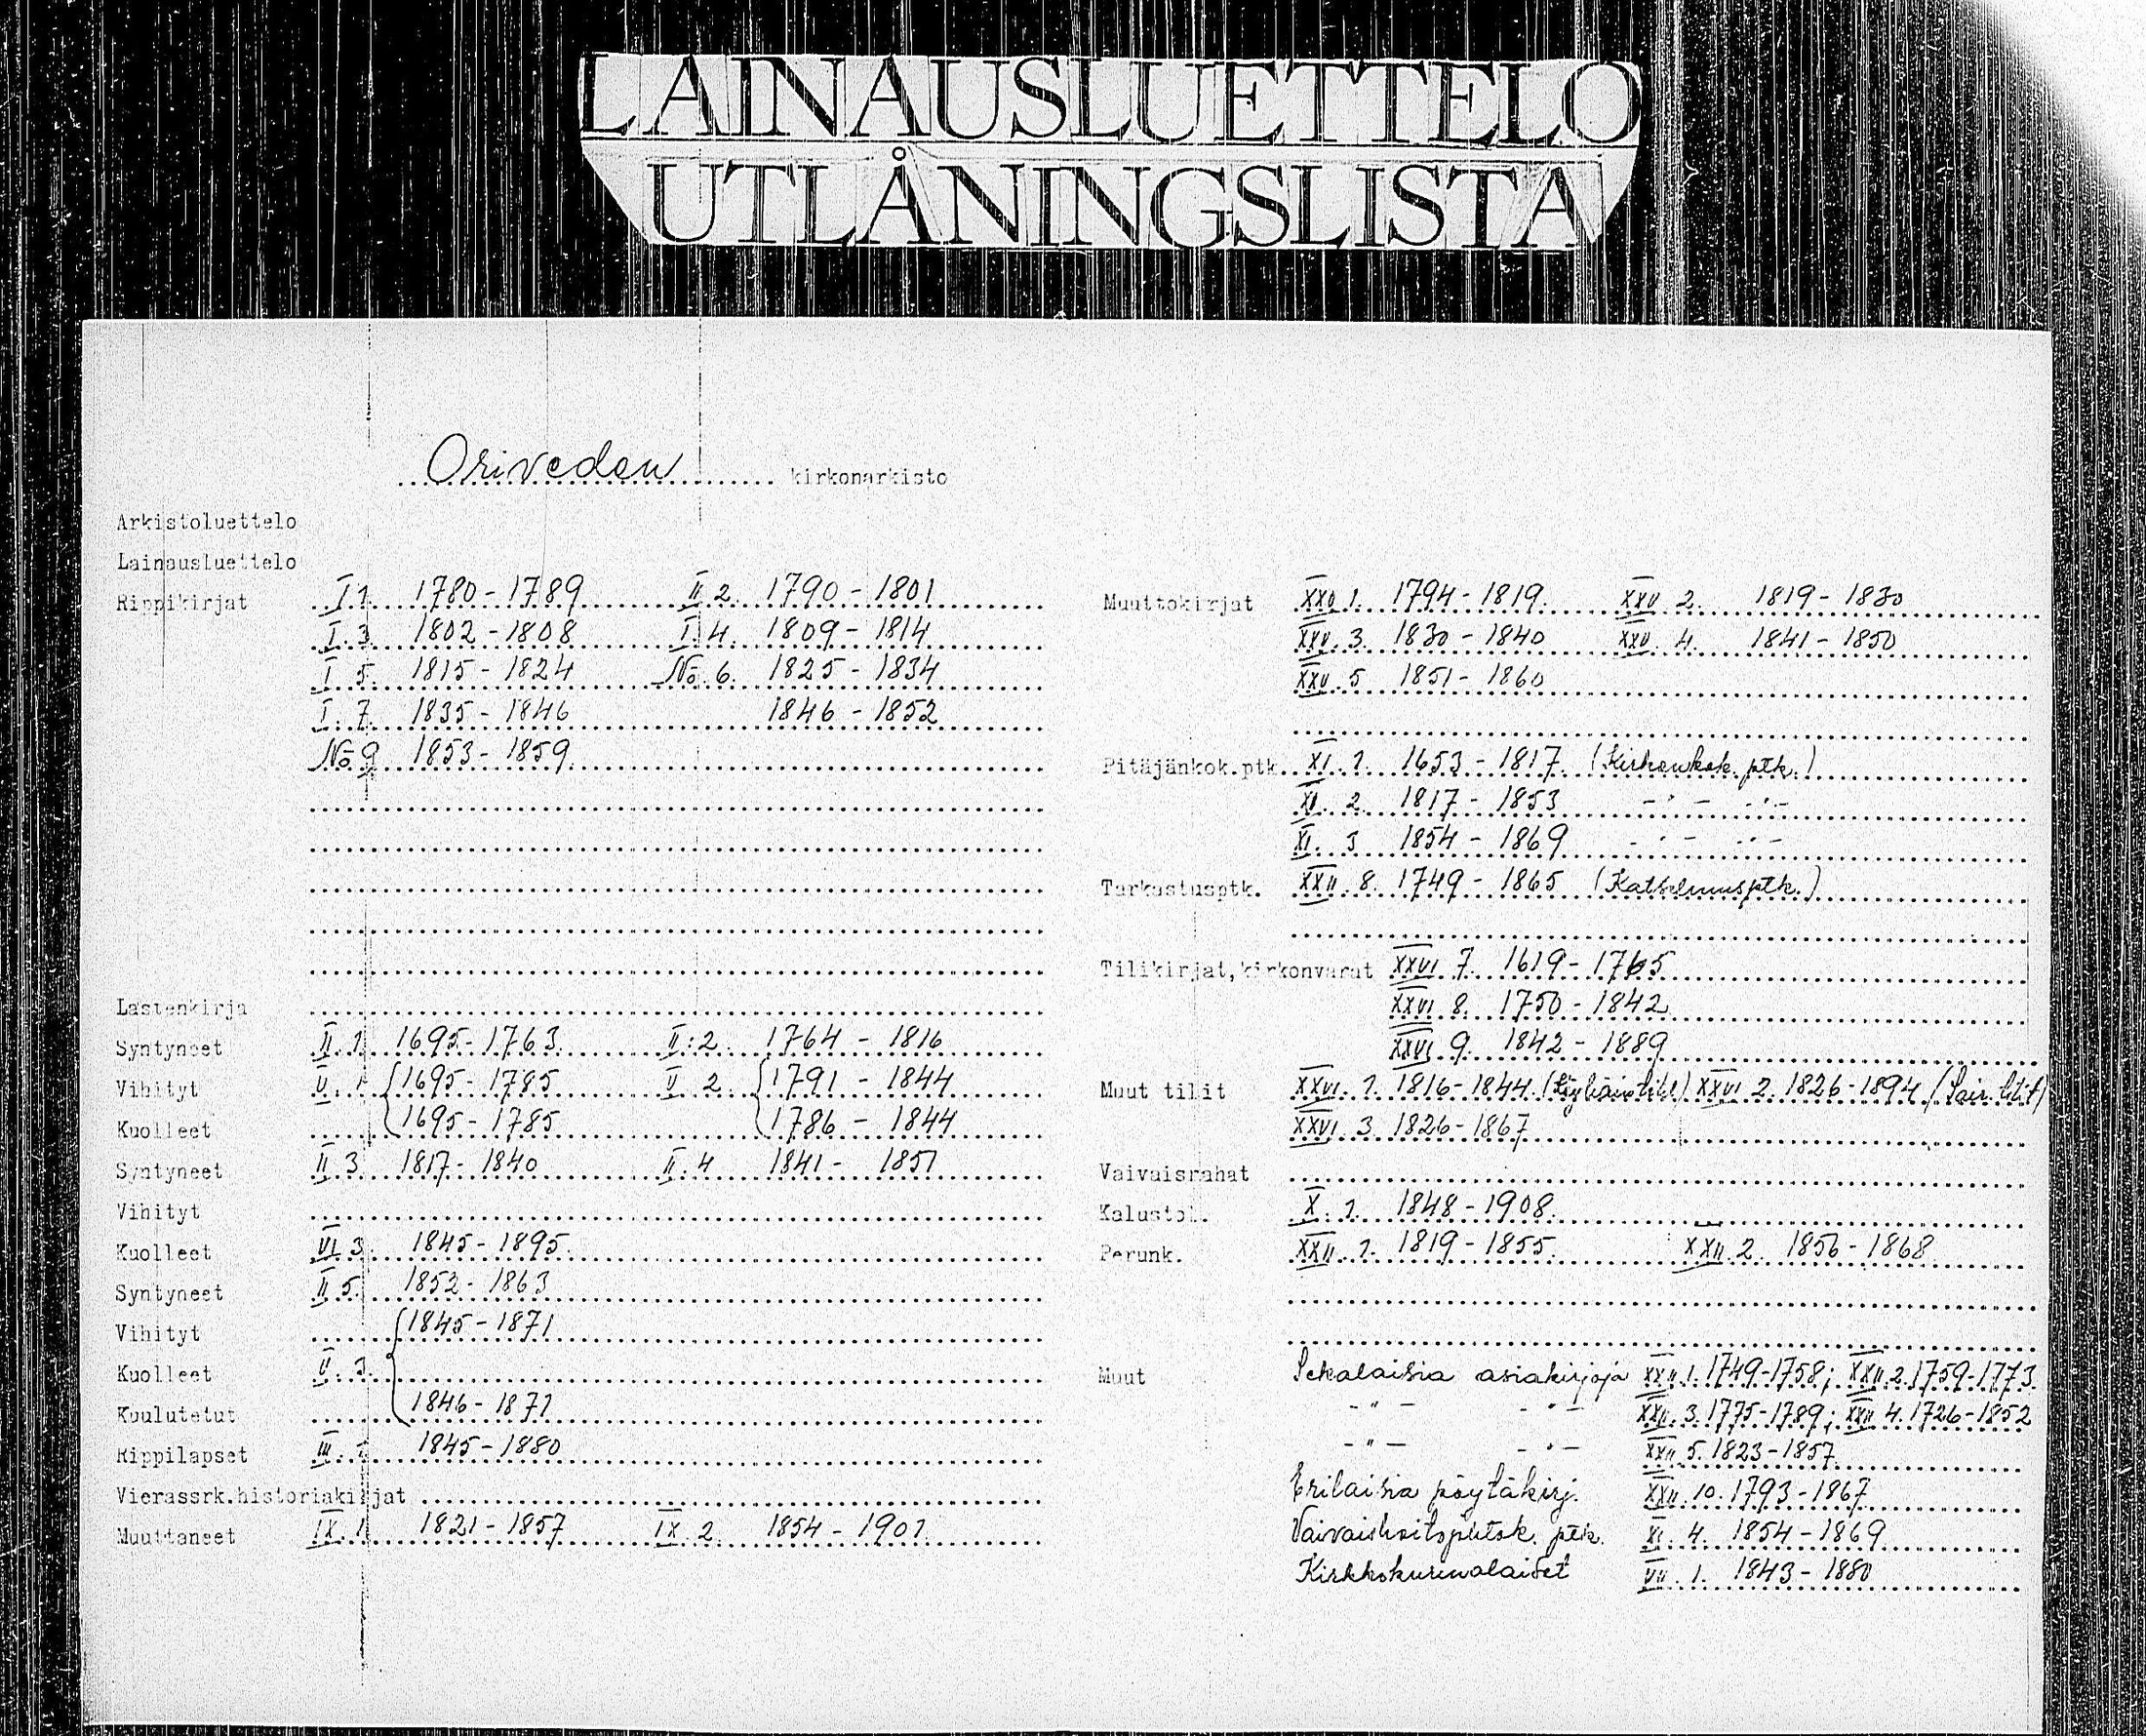 LAINAUSLUETTELO
UTLÅNINGSLISTA
Oriveden kirkonarkisto
Arkistoluettelo
Lainausluettelo
Rippikirjat I 1. 1780-1789 II 2. 1790-1801
I. 3 1802-1808 I. 4. 1809-1814
I 5. 1815-1824 No 6. 1825-1834
I. 7. 1835-1846 1846-1852
No 9 1853-1859
Lastenkirja
Syntyneet II. 1 1695-1763 II:2 1764-1816
Vihityt V. 1 1695-1785 V. 2. 1791-1844
Kuolleet 1695-1785 1786-1844
Syntyneet II. 3. 1817-1840 II. 4 1841-1851
Vihityt
Kuolleet VI 3. 1845-1895
Syntyneet II 5. 1852-1863
Vihityt 1845-1871
Kuolleet V. 3.
Kuulutetut 1846-1871
Rippilapset III. 1 1845-1880
Vierassrk.historiakirjat
Muuttaneet IX. 1. 1821-1857 IX. 2. 1854-1901
Muuttokirjat XXV. 1. 1794-1819 XXV 2. 1819-1830
XXV. 3. 1830-1840 XXV. 4. 1841-1850
XXV. 5 1851-1860
Pitäjänkok.ptk. XI. 1. 1653-1817 (Kirkonkok. ptk.)
XI. 2. 1817-1853 -"- -"-
XI. 3 1854-1869 -"- -"-
Tarkastusptk. XXII. 8. 1749-1865 (Katselmusptk.)
Tilikirjat,kirkonvarat XXVI 7. 1619-1765
XXVI 8. 1750-1842
XXVI. 9. 1842-1889
Muut tilit XXVI. 1. 1816-1844 XXVI 2. 1826-1894 (Sair. tilit)
XXVI. 3. 1826-1867
Vaivaisrahat
Kalustol. X. 1. 1848-1908
Perunk. XXII. 1. 1819-1855 XXII. 2. 1856-1868
Muut Sekalaisia asiakirjoja XXII. 1. 1749-1758; XXII. 2. 1759-1773
-"- -"- XXII. 3. 1775-1789; XXII 4. 1726-1852
-"- -"- XXII. 5. 1823-1857
Erilaisia pöytäkirj. XXII. 10. 1793-1867
Vaivaishoito ptk. XI. 4. 1854-1869
Kirkkokurinalaiset VII. 1. 1843-1880